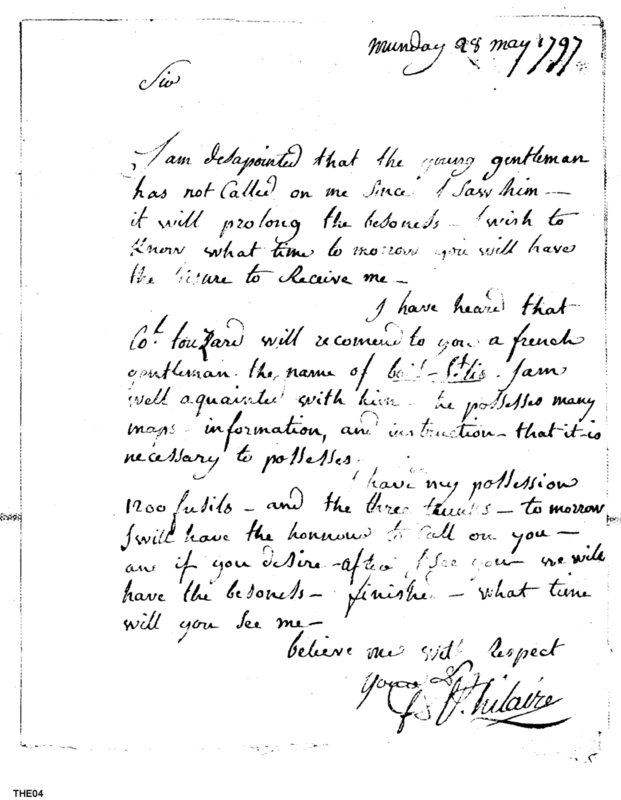 munday 28 may 1797
Sir
I am desapointed that the young gentleman
has not Called on me Since I Saw him —
it will prolong the besoness — I wish to
Know what time to morrow you will have
the to Receive me —
I have heard that
Col. touzard will recomend to you a french
gentleman the name of I am
well aquainted with him — he possesses many
maps — information, and instruction — that it is
necessary to possesses.
I have my possession
1200 fusils — and the three — to morrow
I will have the honnour to Call on you —
and if you desire — after I see you — we will
have the besoness — finished — what time
will you See me —
believe me with Respect
Yours &
St. hilaire
THE04